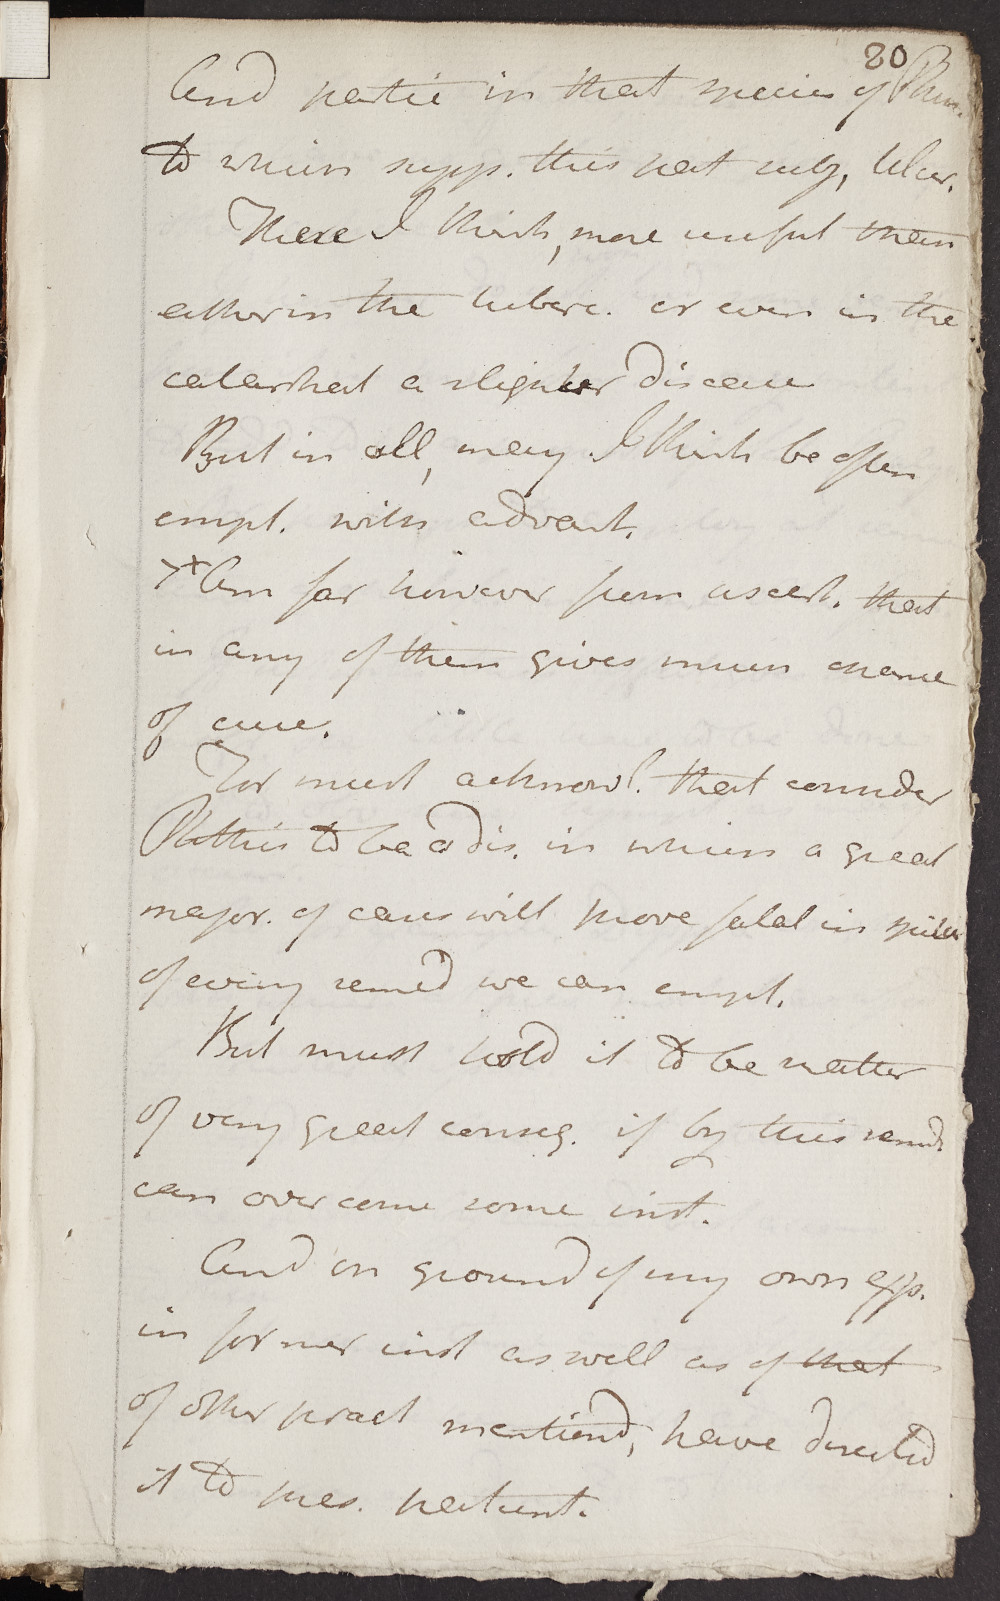 80
And partic in that species of Phthis.
to which supp. this pat subj, Ulcer.
There I think, more useful than
either in the tuberc. or even in the
catarrhal a slighter disease
But in all, may I think be often
empl. with advant.
+ Am far however from assert. that
in any of them gives much chance
of cure.
For must acknowl. that consider
Phthis to be a dis. in which a great
major. of cases will prove fatal in spite
of every remed we can empl.
But must hold it to be matter
of very great conseq. if by this remed.
can overcome some inst.
And on ground of my own exp.
in former inst as well as of that
of other pract mentiond, have directed
it to pres. patient.